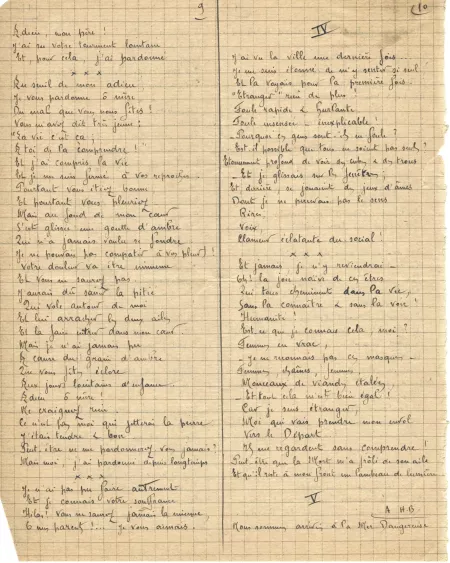 9
Adieu, mon père !
J'ai su votre tourment lointain
Et, pour cela, j'ai pardonné
* * *
Au seuil de mon adieu
Je vous pardonne ô mère
Du mal que vous me fîtes !
Vous m'avez dit très jeune :
"La vie c'est ça ;
À toi de la comprendre !"
Et j'ai compris la vie
Et je me suis fermé à vos reproches
Pourtant vous étiez bonne
Et pourtant vous pleuriez
Mais au fond de mon cœur
S'est glissée une goutte d'ambre
Qui n'a jamais voulu se fondre
Je ne pouvais pas compatir à vos pleurs !
Votre douleur va être immense
Et vous ne saurez pas
J'aurais dû saisir la pitié
Qui vole autour de moi
Et lui arracher les ailes
Et la faire entrer dans mon cœur
Mais je n'ai jamais pu
À cause du grain d'ambre
Qui vous fit éclore
Aux jours lointains d'enfance
Adieu ô mère !
Ne craignez rien
Ce n'est pas moi qui jetterai la pierre
J'étais tendre & bon
Peut-être ne me pardonnerez vous jamais ?
Mais moi, j'ai pardonné depuis longtemps
* * *
Je n'ai pas pu faire autrement
Et je connais votre souffrance
Hélas ! Vous ne saurez jamais la mienne,
Ô mes parents !... Je vous aimais.
10
IV
J'ai vu la ville une dernière fois
Je me suis étonné de m'y sentir si seul
Et la voyais pour la première fois.
"Étranger" rien de plus !
Foule rapide & hurlante
Foule insensée - inexplicable !
- Pourquoi ces gens sont-ils en foule ?
Est-il possible que tous ne soient pas seuls ?
Étonnement profond de voir les autres
- Et je glissais sur les fenêtres ;
Et derrière, se jouaient des jeux d'âmes
Dont je ne trouvais pas le sens
Rires,
Voix,
Clameur éclatante du social !
* * *
Et jamais je n'y reviendrai -
Oh ! la joie naïve de ces êtres
Qui tous cheminent dans la vie,
Sans la connaître & sans la voir !
Humanité !
Est-ce que je connais cela, moi ?
Femmes en vrac,
- Je ne reconnais pas ces masques -
Femmes, chaînes, femmes
Monceaux de viandes étalées,
- Et tout cela m'est bien égal !
Car je suis étranger,
Moi qui vais prendre mon envol
Vers le Départ
Ils me regardent sans comprendre !
Peut-être que la Mort m'a frôlé de son aile
Et qu'il reste à mon front un lambeau de lumière
V
A H.B.
Nous sommes arrivés à la Mer Dangereuse